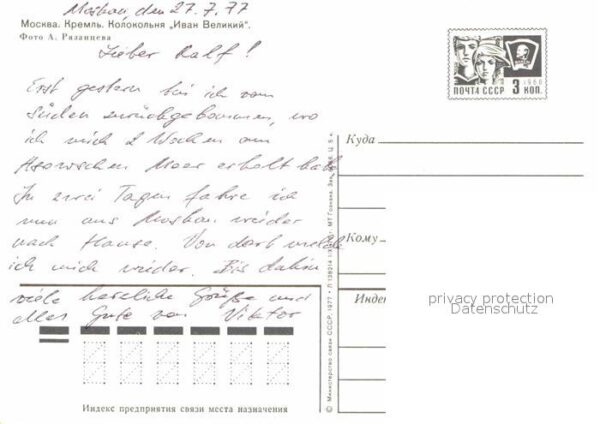 Moskau, den 27.7.77
Москва. Кремль. Колокольня „Иван Великий".
Фото А. Рязанцева
Lieber Ralf!
Erst gestern bin ich vom
Süden zurückgekommen, wo
ich mich 2 Wochen am
Asowschen Meer erholt habe.
In zwei Tagen fahre ich
nun aus Moskau wieder
nach Hause. Von dort melde
ich mich wieder. Bis dahin
viele herzliche Grüße und
alles Gute von Viktor
1966
ПОЧТА СССР 3 КОП.
Куда
Кому
Индекс
privacy protection
Datenschutz
© Министерство связи СССР. 1977
МТ Гознака.
Индекс предприятия связи места назначения